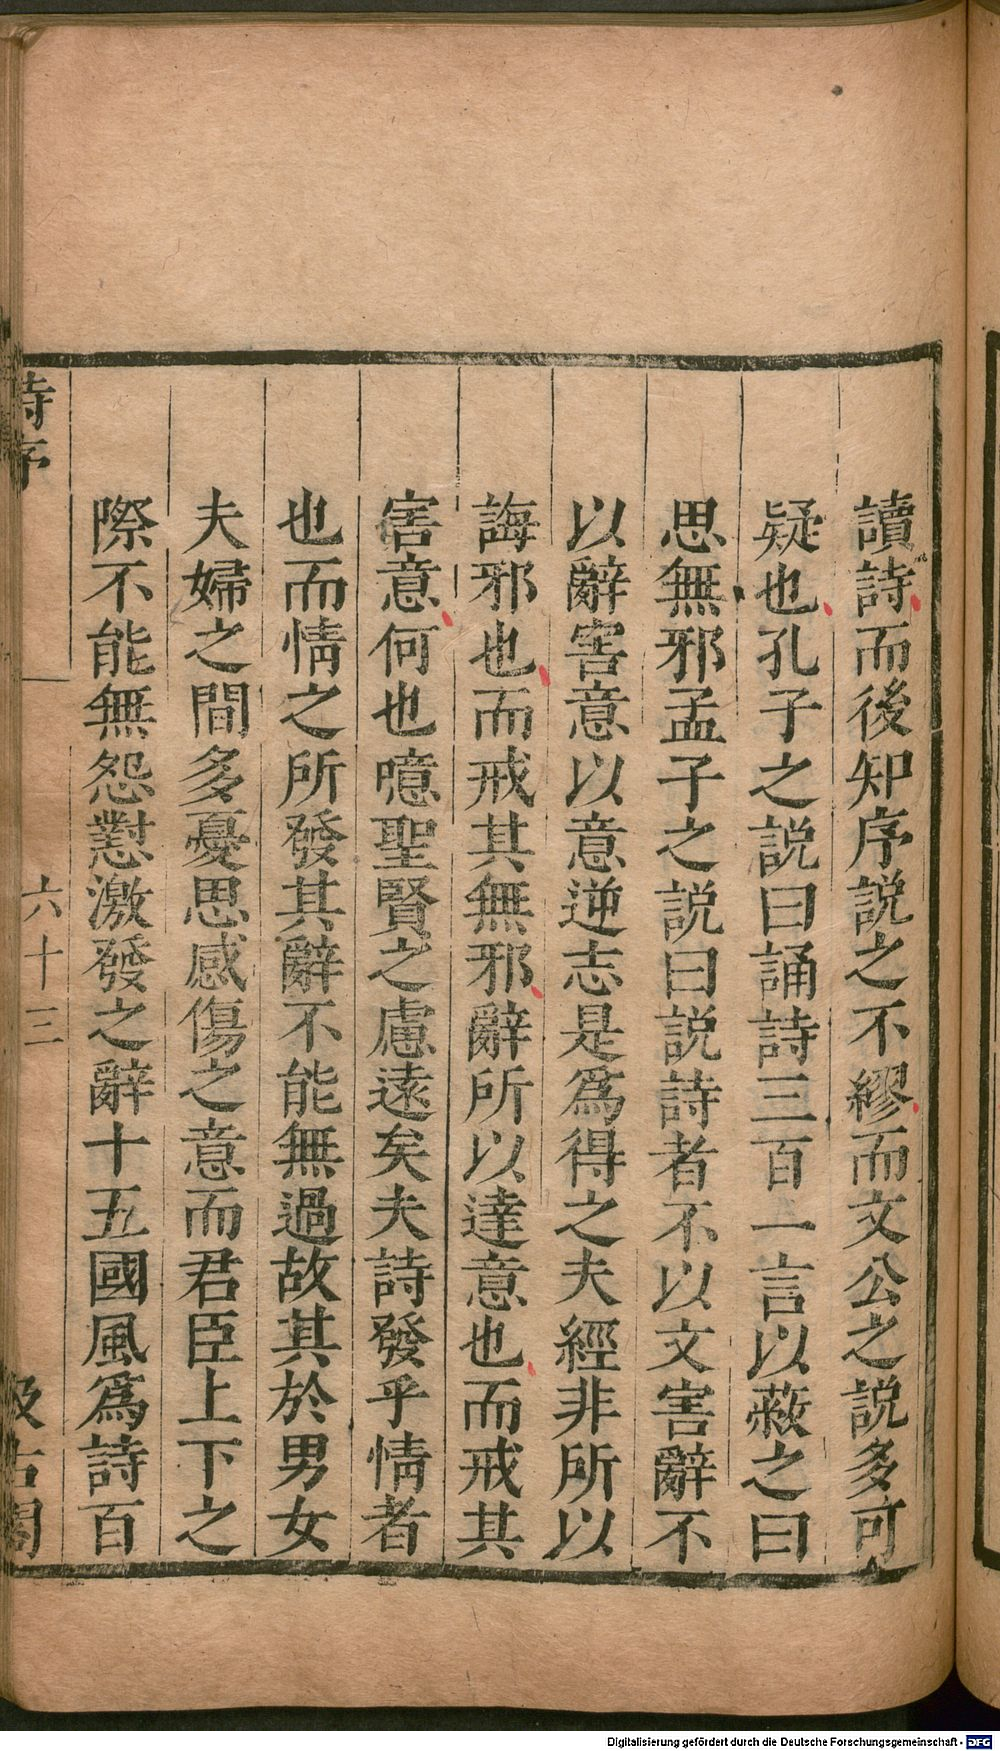 讀詩而後知序説之不繆而文公之説多可
疑也孔子之説曰誦詩三百一言以蔽之曰
思無邪孟子之説曰説詩者不以文害辭不
以辭害意以意逆志是爲得之夫經非所以
誨邪也而戒其無邪辭所以達意也而戒其
害意何也噫聖賢之慮遠矣夫詩發乎情者
也而情之所發其辭不能無過故其於男女
夫婦之間多憂思感傷之意而君臣上下之
際不能無怨懟激發之辭十五國風爲詩百
詩序
六十三
汲古閣
Digitalisierung gefördert durch die Deutsche Forschungsgemeinschaft - DFG